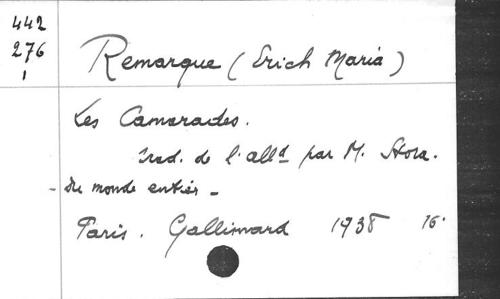 442
276
1
Remarque (Erich Maria)
Les Camarades.
Trad. de l'alld par M. Stora.
- Du monde entier -
Paris. Gallimard 1938 16°